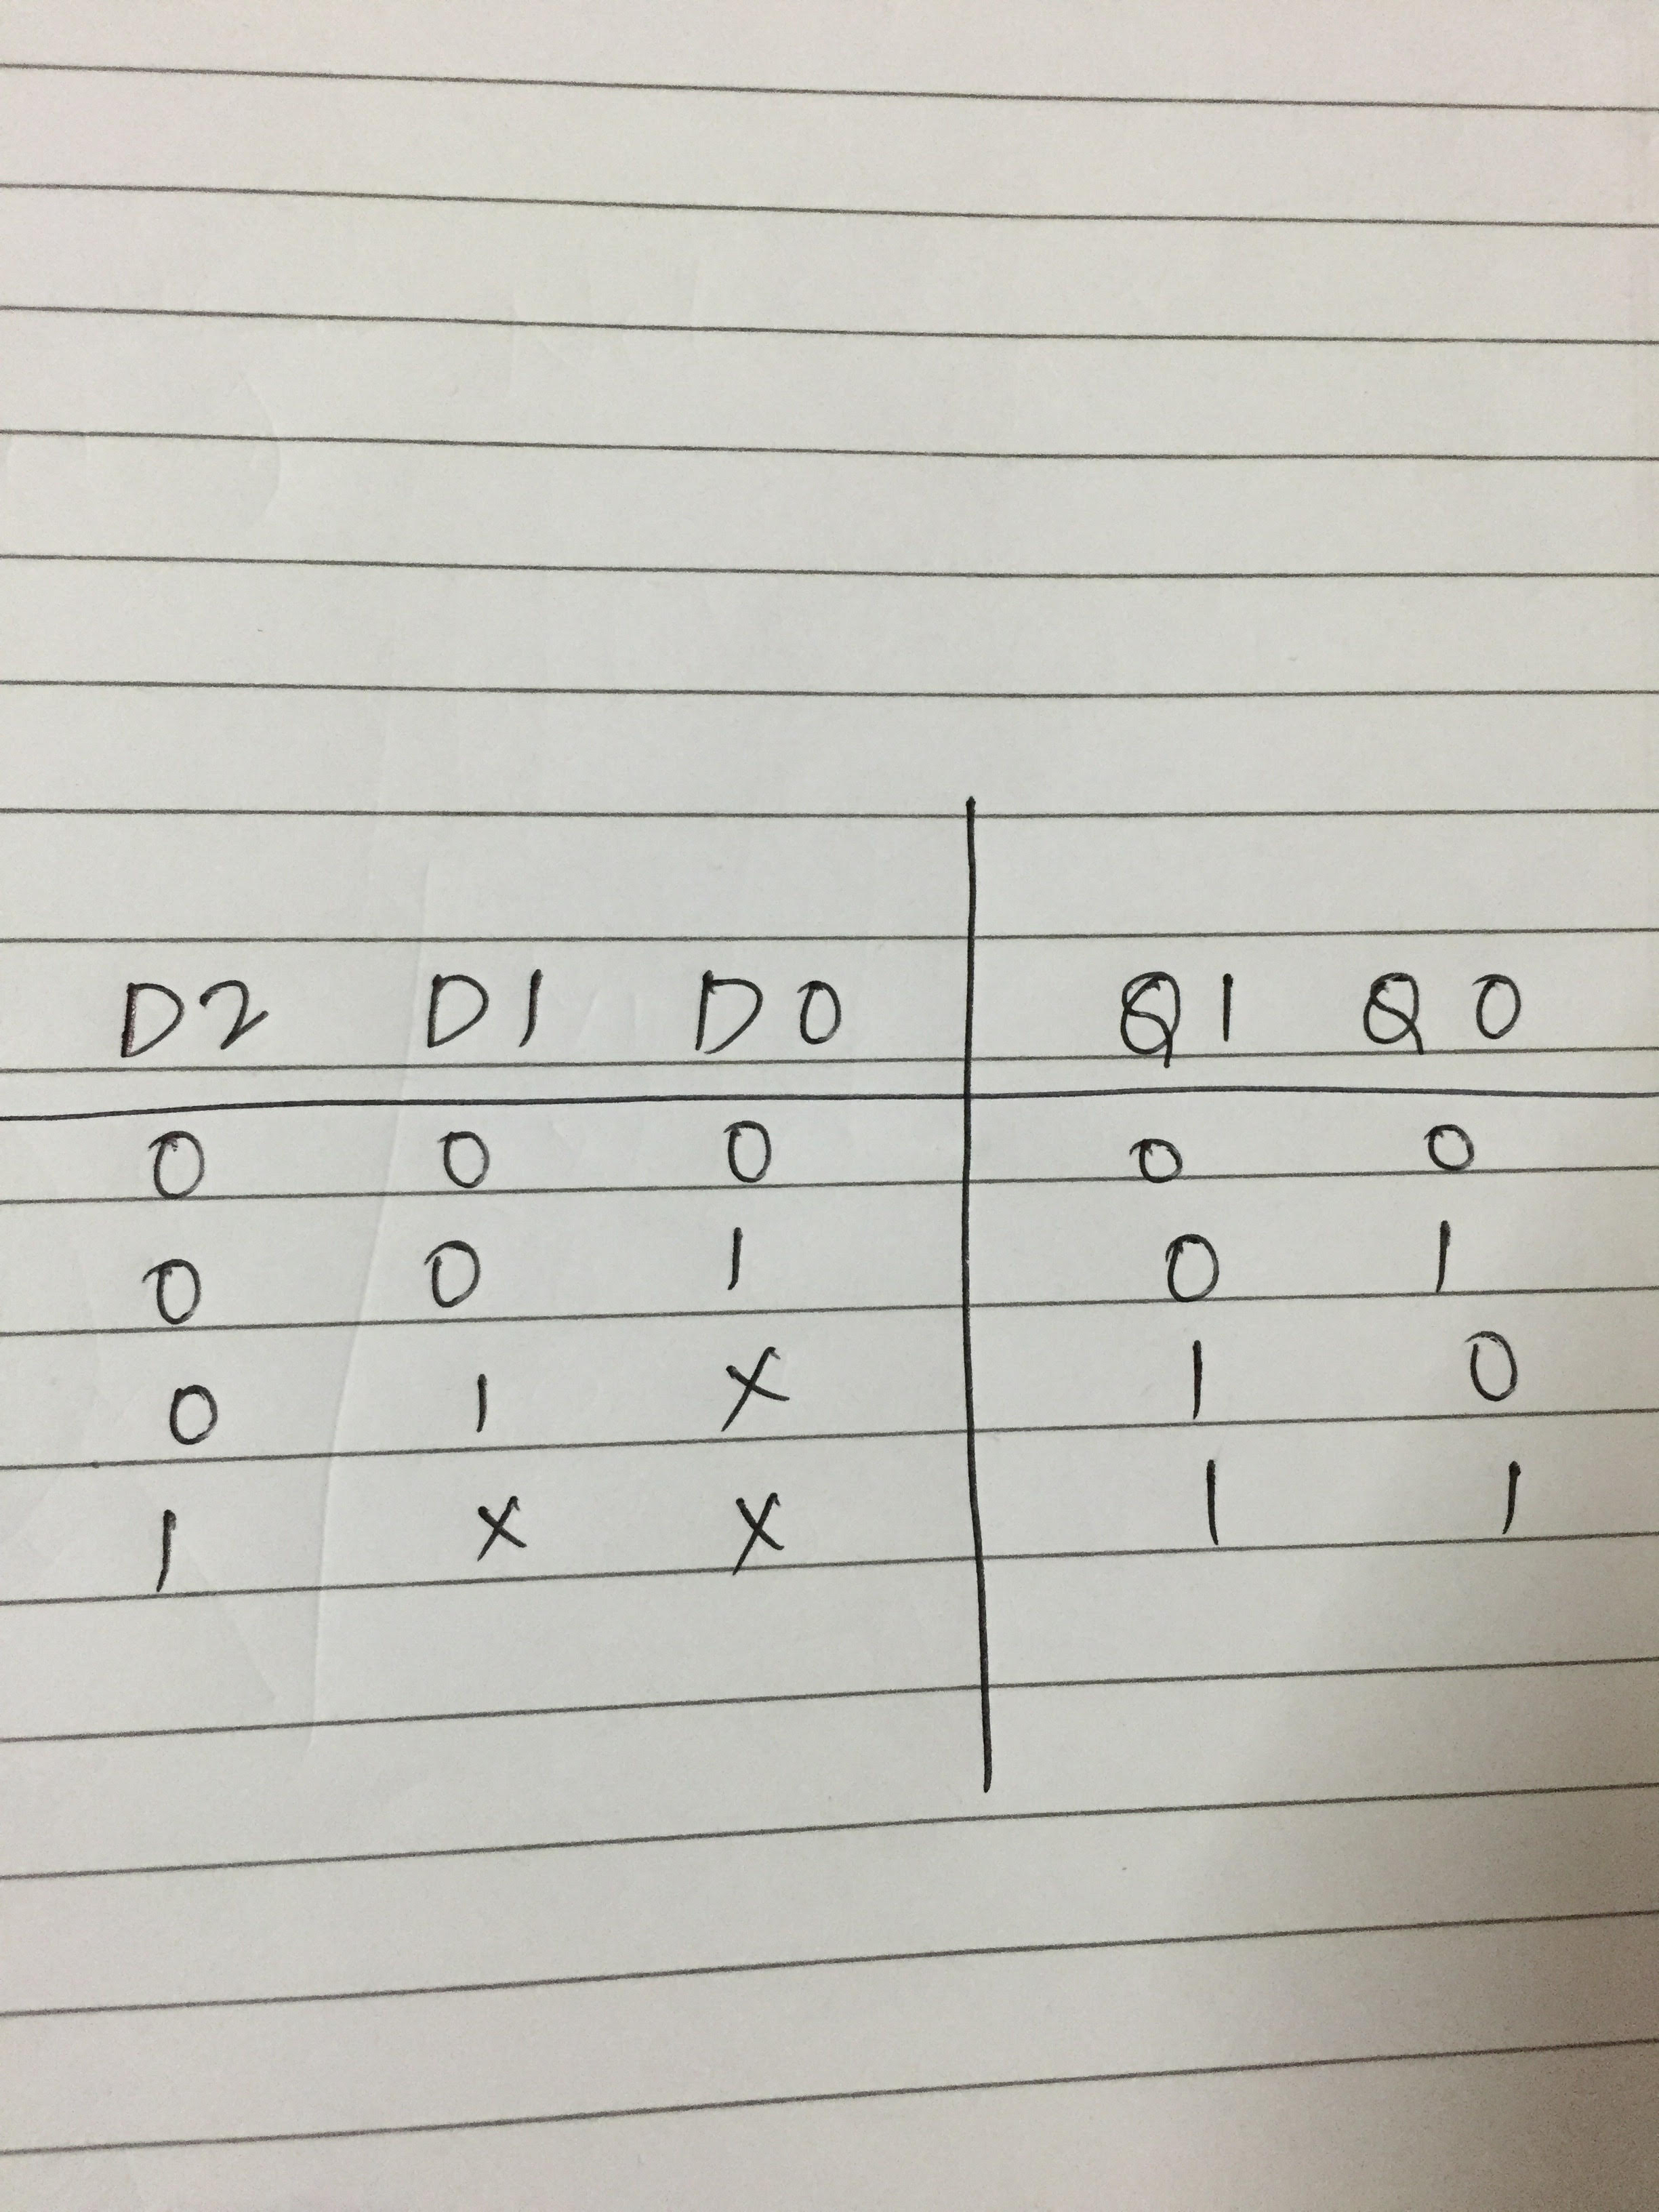 D2 D1 D0 Q1 Q0
0 0 0 0 0
0 0 1 0 1
0 1 X 1 0
1 X X 1 1